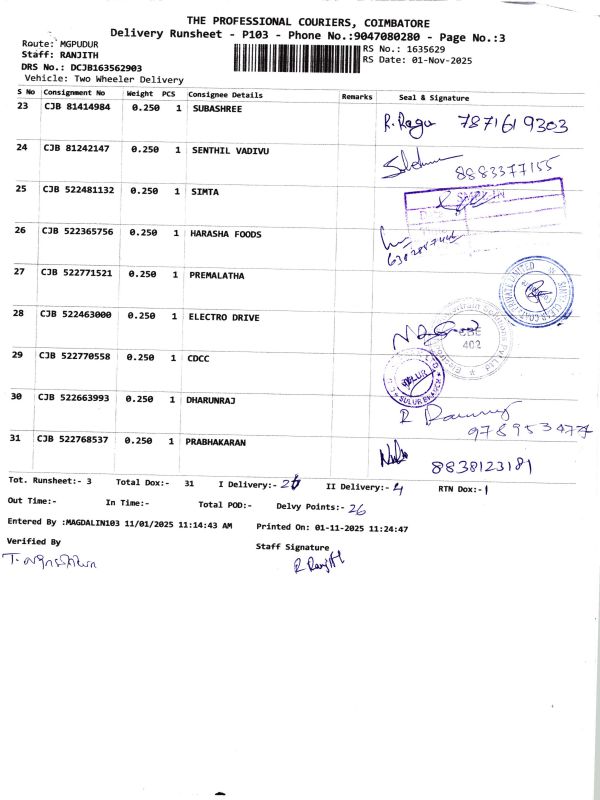 THE PROFESSIONAL COURIERS, COIMBATORE
Delivery Runsheet - P103 - Phone No.:9047080280 - Page No.:3
Route: MGPUDUR
RS No.: 1635629
Staff: RANJITH
RS Date: 01-Nov-2025
DRS No.: DCJB163562903
Vehicle: Two Wheeler Delivery
S No Consignment No Weight PCS Consignee Details Remarks Seal & Signature
23 CJB 81414984 0.250 1 SUBASHREE R. Ragu 7871619303
24 CJB 81242147 0.250 1 SENTHIL VADIVU 8883377155
25 CJB 522481132 0.250 1 SIMTA
26 CJB 522365756 0.250 1 HARASHA FOODS
27 CJB 522771521 0.250 1 PREMALATHA
28 CJB 522463000 0.250 1 ELECTRO DRIVE
402
29 CJB 522770558 0.250 1 CDCC
SULUR
SULUR BRANCH
30 CJB 522663993 0.250 1 DHARUNRAJ
31 CJB 522768537 0.250 1 PRABHAKARAN 8838123181
Tot. Runsheet:- 3 Total Dox:- 31 I Delivery:- 26 II Delivery:- 4 RTN Dox:- 1
Out Time:- In Time:- Total POD:- Delvy Points:- 26
Entered By :MAGDALIN103 11/01/2025 11:14:43 AM Printed On: 01-11-2025 11:24:47
Verified By Staff Signature
R Ranjith